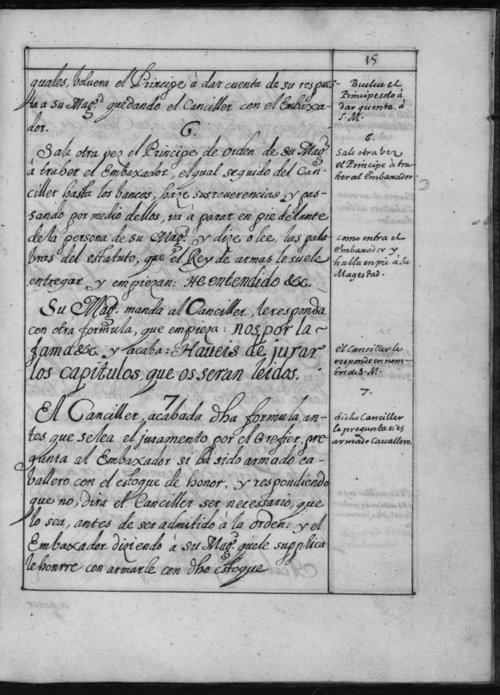 15
quales, boluera el Principe à dar cuenta de su respues-
ta a su Mag.d quedando el Canciller con el Embaxa-
dor.
6.
Sale otra vez el Principe de orden de su Mag.d
à traher el Embaxador, el qual seguido del Can-
ciller hasta los bancos, haze sus reverencias, y pas-
sando por medio dellos, và à parar en pie delante
de la persona de su Mag.d y dize, ò lee, las pala-
bras del estatuto, que el Rey de armas le suele
entregar, y empiezan: He entendido &c.
Su Mag.d manda al Canciller, le responda
con otra formula, que empieza: nos por la
fama &c. y acaba: Haueis de jurar
los capitulos, que os seran leidos.
7
El Canciller, acabada dha formula, an-
tes que se lea el juramento por el Grefier, pre-
gunta al Embaxador si ha sido armado ca-
ballero con el estoque de honor, y respondiendo
que no, dira el Canciller ser necessario, que
lo sea, antes de ser admitido à la orden: y el
Embaxador diziendo à su Mag.d que le supplica
le honrre con armarle con dho estoque
Buelve el
Principe solo à
dar quenta à
S. M.
6.
Sale otra bez
el Principe à tra
her al Embaxador.
como entra el
Embaxador y
habla en pie à su
Magestad.
El Canciller le
responde en nom-
bre de S. M.
7.
dicho Canciller
le pregunta si es
armado Cauallero.